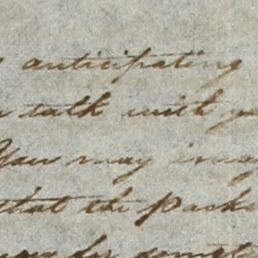 anticipating
talk with
You may imag
that the packe
for somet